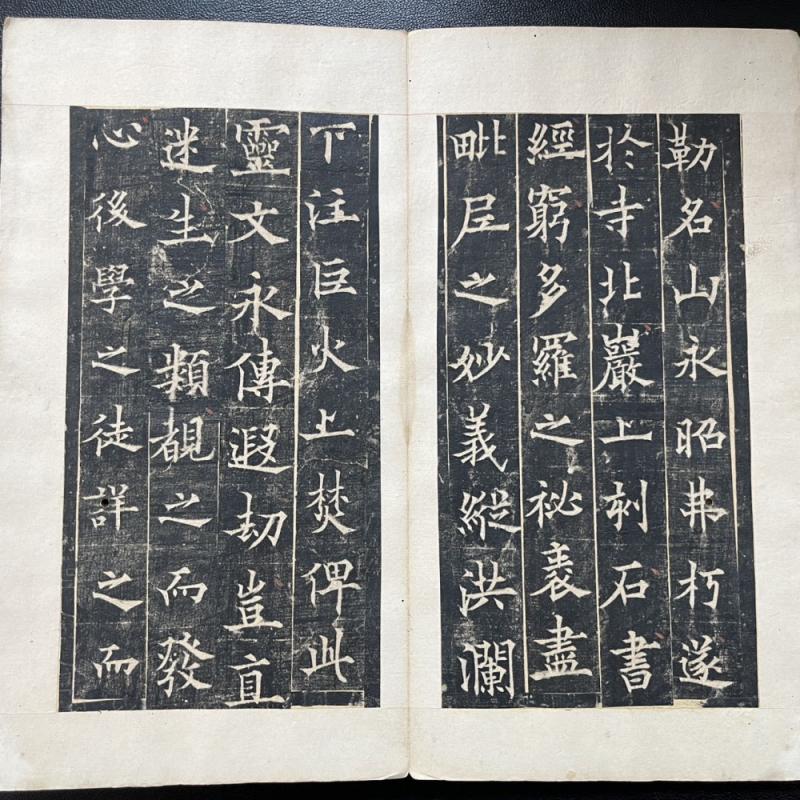 勒名山永昭弗朽遂
於寺北巖上刾石書
經窮多羅之祕袠盡
毗𡰱之妙義縱洪瀾
下注巨火上焚俾此
靈文永傳遐劫豈直
迷生之類覩之而發
心後學之徒詳之而